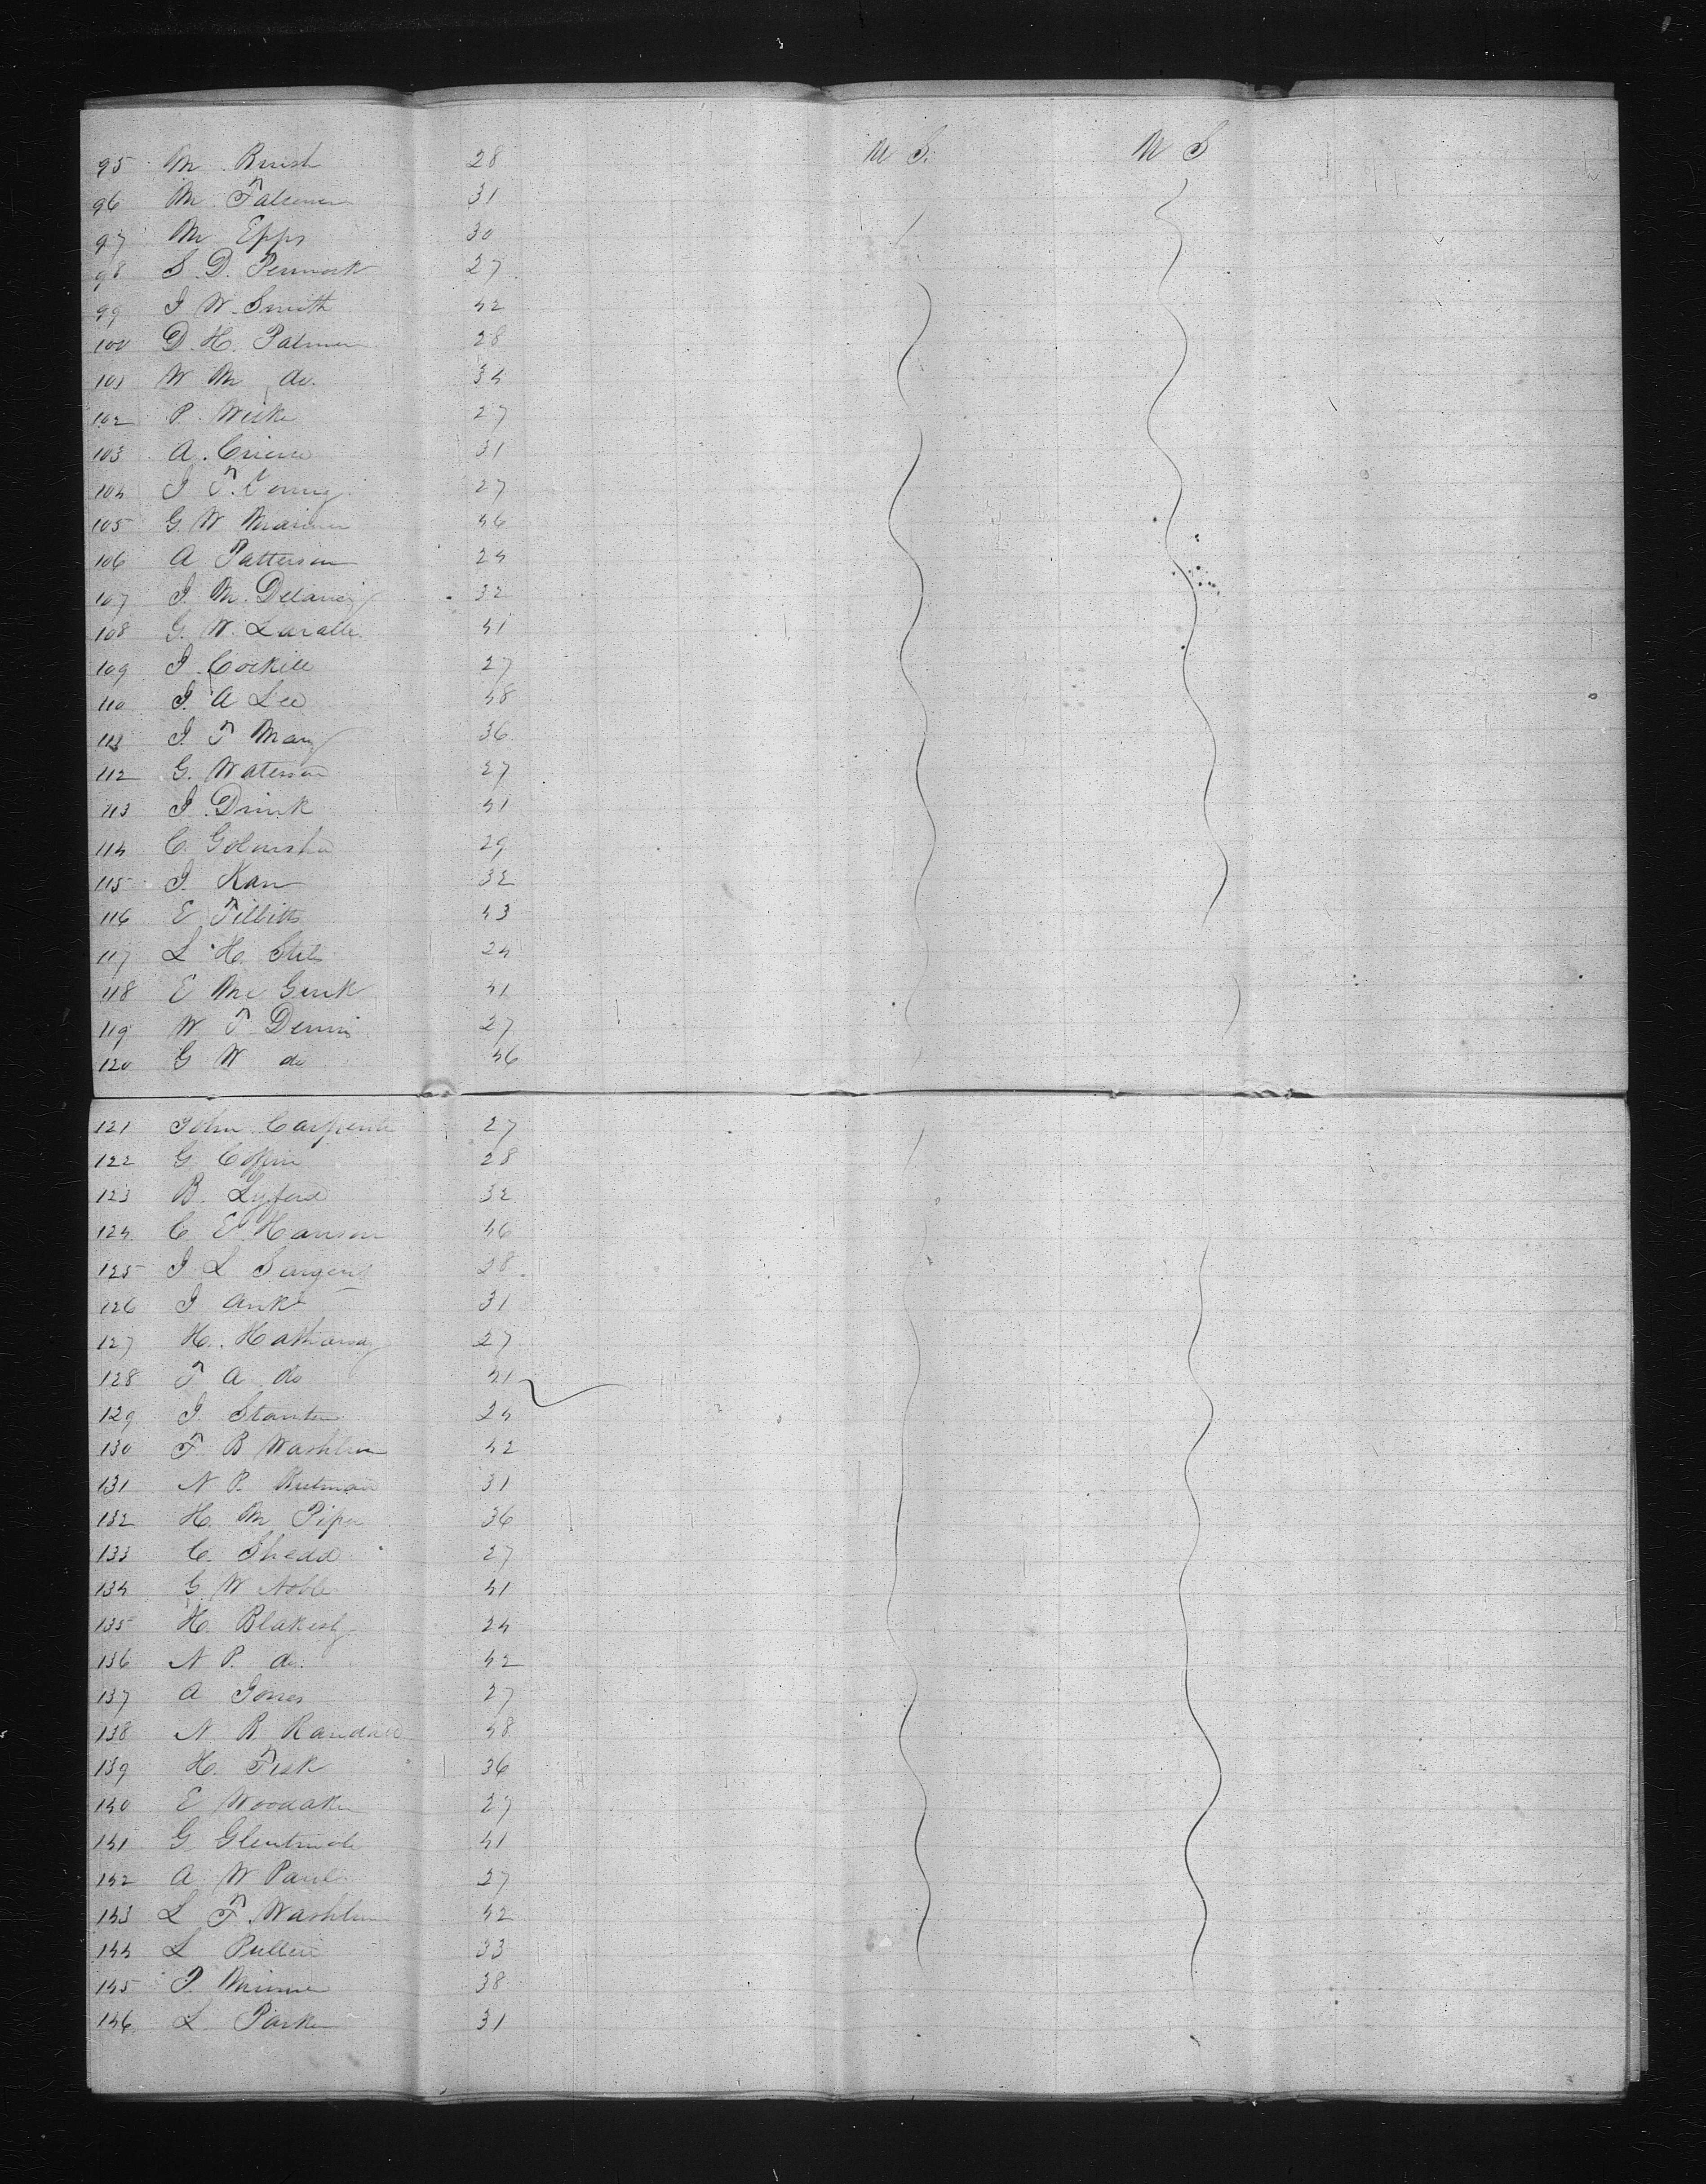 95 M Brush 28 U S. U S
96 M 31
97 M Epps 30
98 S. D. 27
99 J W Smith 42
100 D. H. Palmer 28
101 W M do. 34
102 P. 27
103 A. 31
104 J F. Young 27
105 G. W 46
106 A Patterson 24
107 J. M. Delancy 32
108 G. W. 41
109 J. Corkill 27
110 J. A Lee 48
111 J. F Many 36
112 G. Waterson 27
113 J. Drink 41
114 C. 29
115 J. Kan 32
116 E Tibbitts 43
117 L H. 24
118 E Mc 41
119 W F Dennis 27
120 G W do 46
121 John Carpenter 27
122 G Coffin 28
123 B. Lyford 32
124 C E Hanson 46
125 J L Sargent 28
126 J 31
127 H. Hathaway 27
128 F A do 41
129 J Stanton 24
130 F. B Washburn 42
131 N P. 31
132 H. M Piper 36
133 C. Shedd 27
134 G W Noble 41
135 H. Blakesly 24
136 N P. do. 42
137 A Jones 27
138 N B Randall 48
139 H. Fisk 36
140 E 27
141 G 41
142 A W Paul 27
143 L F Washburn 42
144 L Pullen 33
145 J. 38
146 L Parker 31